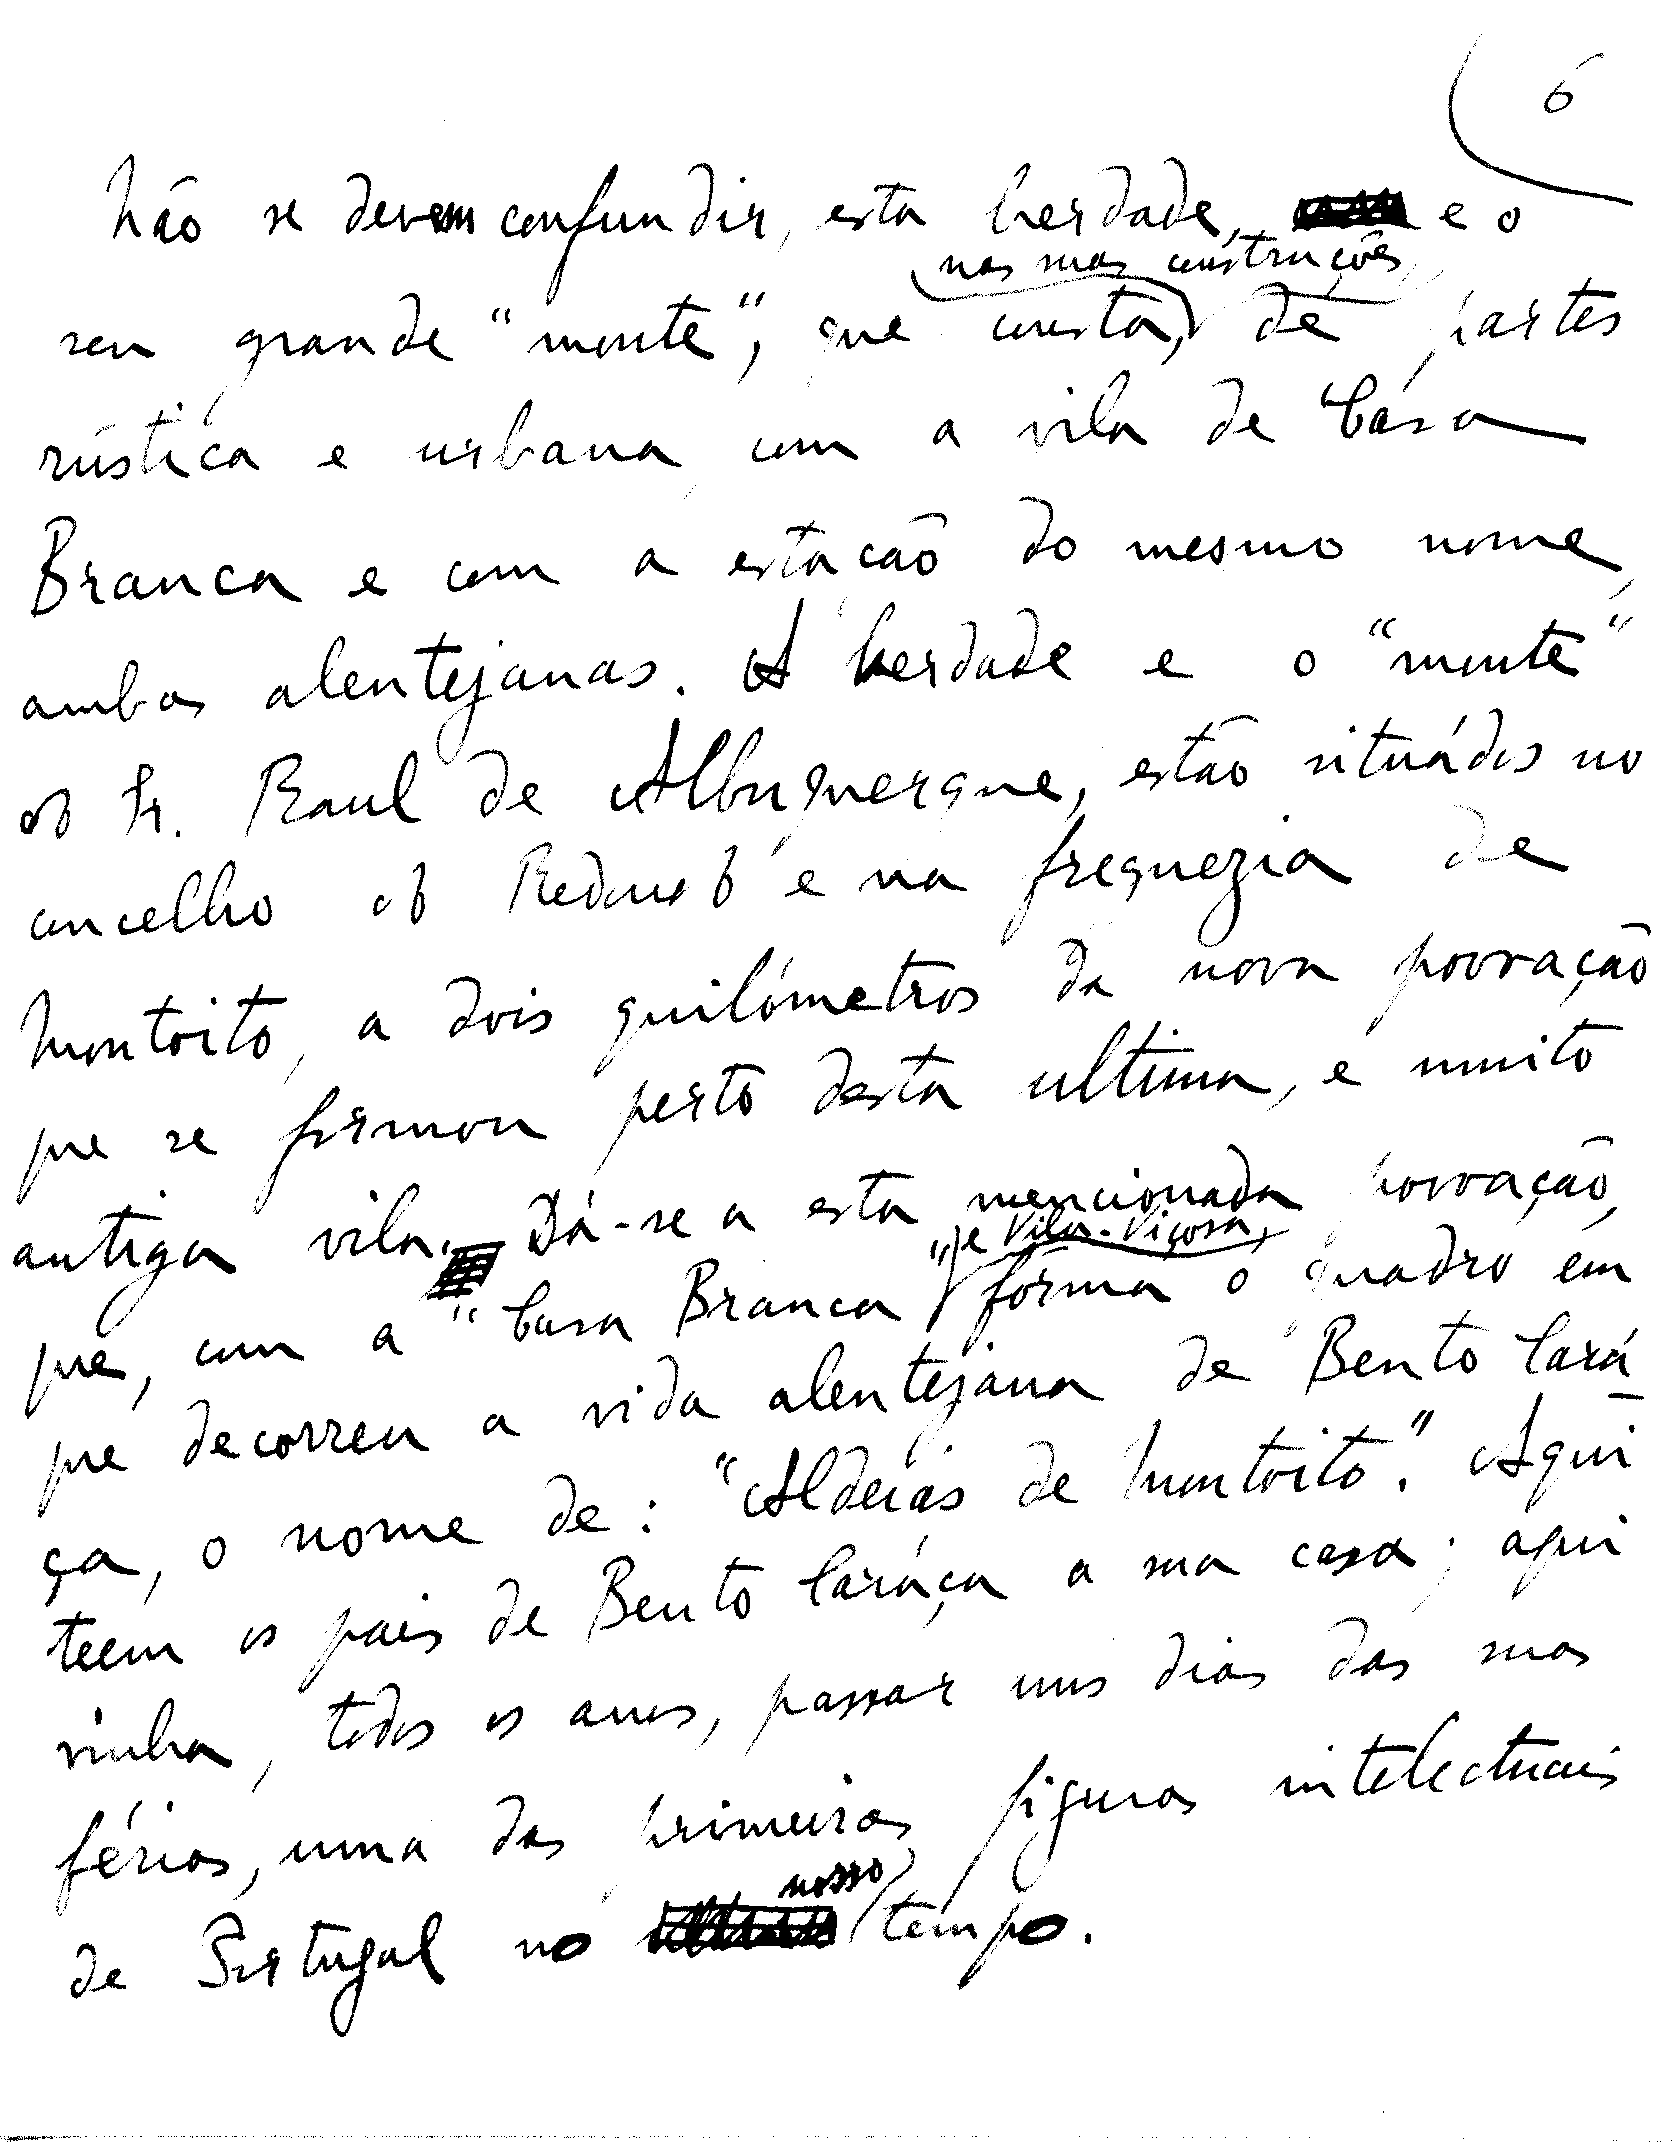 6
Não se devem confundir, esta herdade, e o
nas suas construções,
seu grande "monte", que consta, de partes
rústica e urbana, com a vila de Casa
Branca e com a estação do mesmo nome,
ambas alentejanas. A herdade e o "monte"
do Sr. Raul de Albuquerque, estão situádos no
concelho do Redondo e na freguezia de
Montoito, a dois quilómetros da nova povoação
que se formou perto desta ultima, e muito
antiga vila. Dá-se a esta mencionada povoação,
e Vila-Viçosa,
que, com a "Casa Branca" forma o quadro em
que decorreu a vida alentejana de Bento Cará
ça, o nome de: "Aldeias de Montoito". Aqui
teem os pais de Bento Caráça a sua casa; aqui
vinha, todos os anos, passar uns dias das suas
férias, uma das primeiras figuras intelectuais
nosso
de Portugal no tempo.